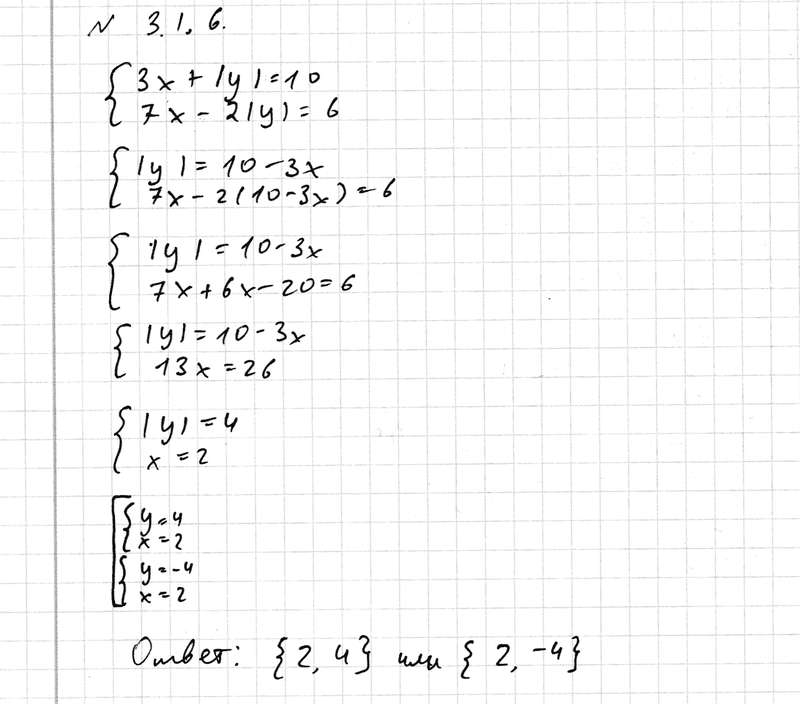 N 3.1.6.
3x + |y| = 10
7x - 2|y| = 6
|y| = 10 - 3x
7x - 2(10 - 3x) = 6
|y| = 10 - 3x
7x + 6x - 20 = 6
|y| = 10 - 3x
13x = 26
|y| = 4
x = 2
y = 4
x = 2
y = -4
x = 2
Ответ: {2, 4} или {2, -4}